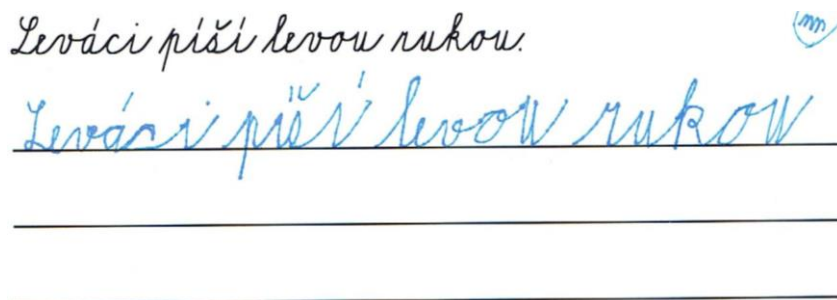 Leváci píší levou rukou.
Leváci píší levou rukou